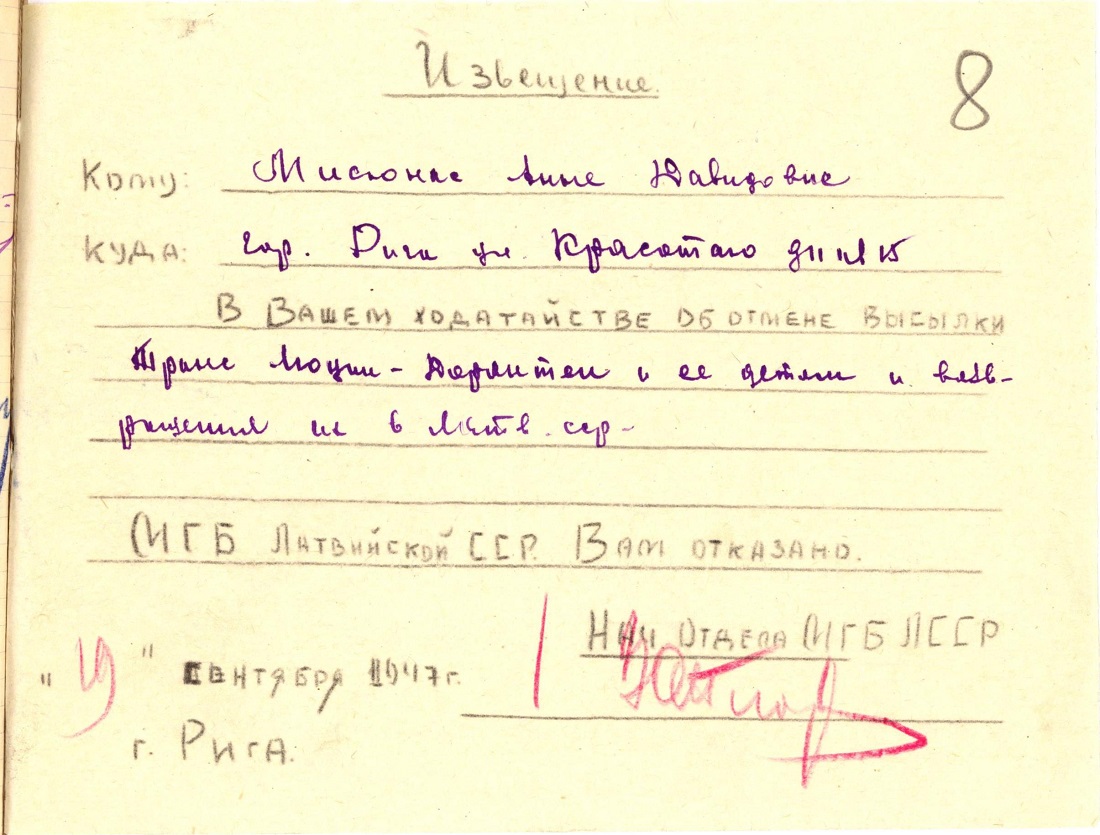 Извещение.
8
Кому: Мисюнас Анне Давидовне
Куда: гор. Рига ул. д 11 кв 15
В Вашем ходатайстве об отмене высылки
и ее детям и воз-
вращения их в Латв. сср-
МГБ Латвийской ССР. Вам отказано.
Нач Отдела МГБ ЛССР
"19" сентября 1947 г.
г. Рига.